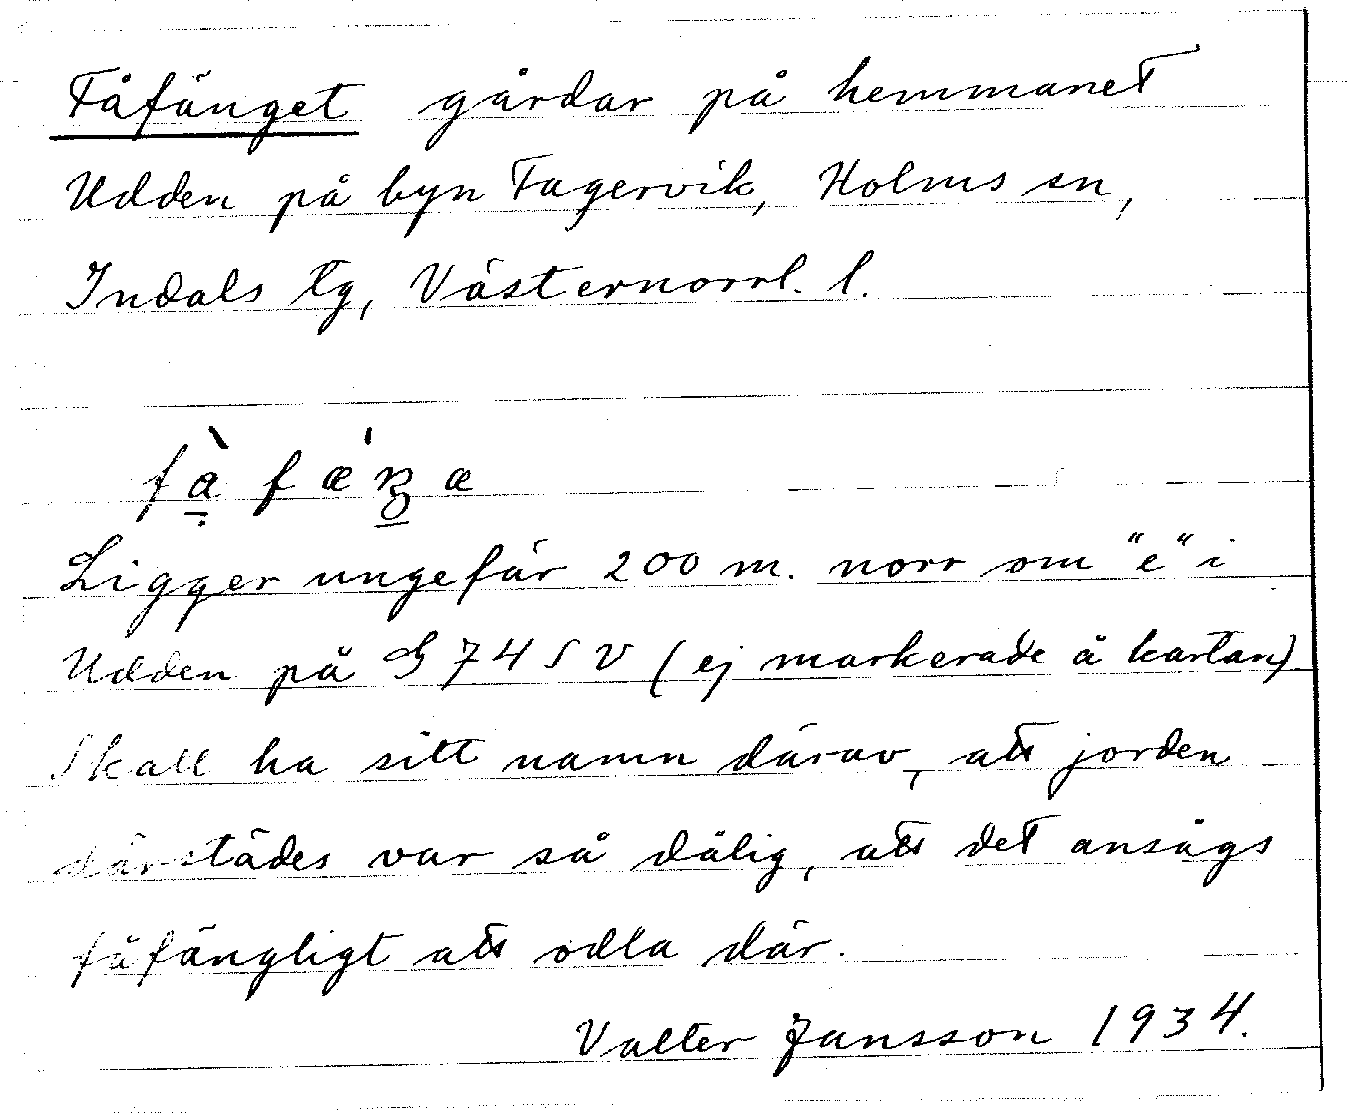 Fåfänget gårdar på hemmanet
Udden på byn Fagervik, Holms sn,
Indals tg, Västernorrl. l.
Ligger ungefär 200 m. norr om "e" i
Udden på G 74 S V (ej markerade å kartan).
Skall ha sitt namn därav, att jorden
därstädes var så dålig, att det ansågs
fåfängligt att odla där.
Valter Jansson 1934.